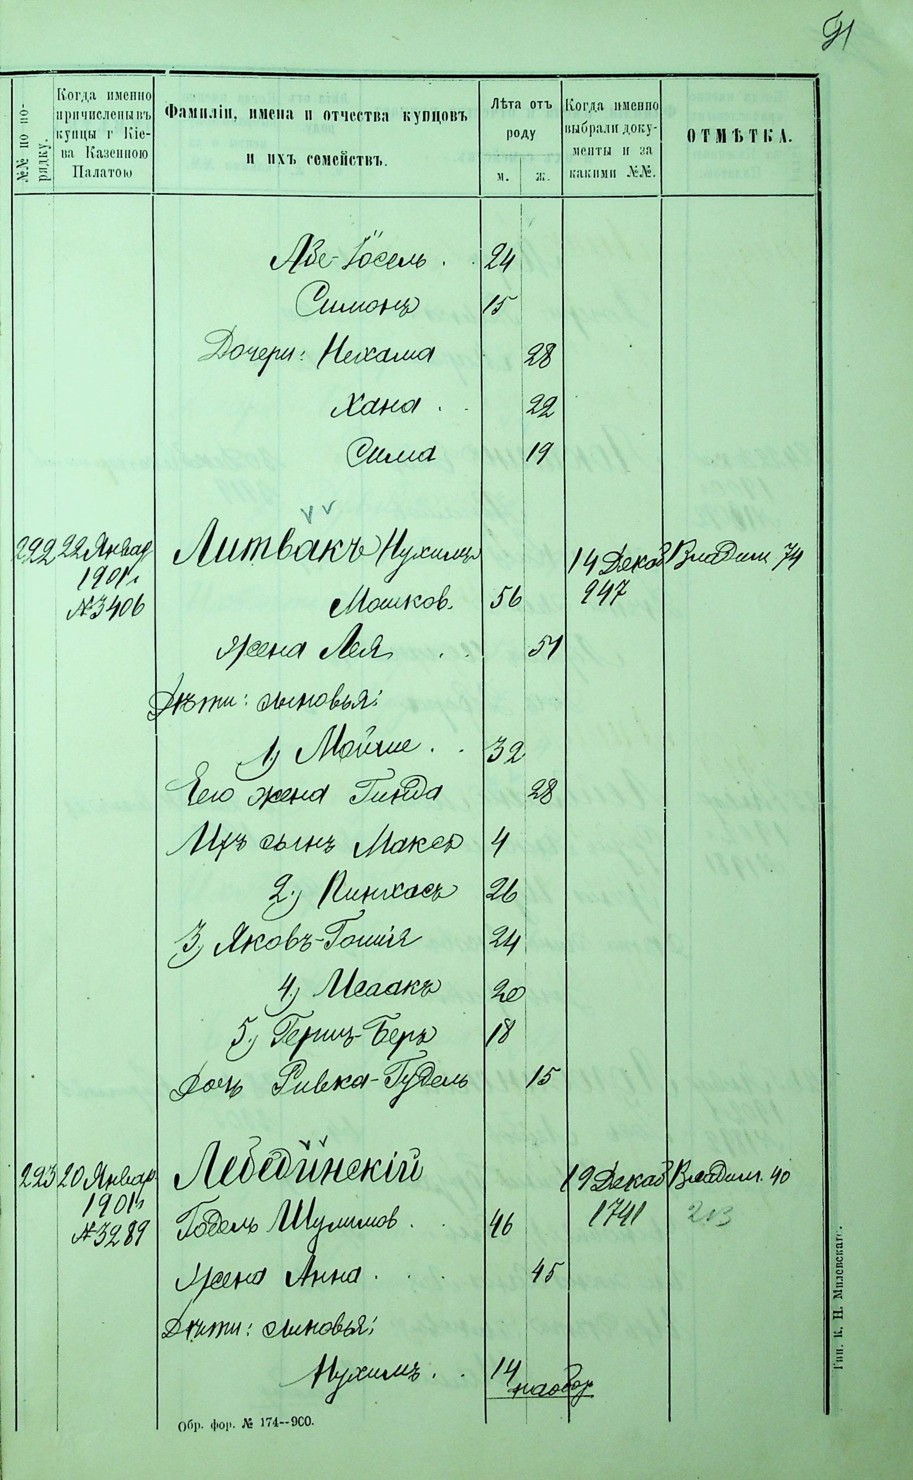 №№ по по-
рядку.
Когда именно
причислены въ
купцы г Кіе-
ва Казенною
Палатою
Фамиліи, имена и отчества купцовъ
и ихъ семействъ.
Лѣта отъ
роду
м. ж.
Когда именно
выбрали доку-
менты и за
какими №№.
ОТМѢТКА.
Абе-Іосель . . 24
Симонъ 15
Дочери: Нехама 28
Хана . . 22
Сима 19
292 22 Январ Литвакъ Нухимъ 14 Декаб Владим 74
1901 г 947
№3406 Мошков. 56
жена Лея . . 51
Дѣти: сыновья:
1) Мойше . . 32
Его жена Гинда 28
Ихъ сынъ Максъ 4
2) Пинхасъ 26
3) Яковъ-Гошія 24
4) Исаакъ 20
5) Гершъ-Беръ 18
Дочь Ривка-Гудель 15
293 20 Январ Лебединскій 19 Декаб Владим. 40
1901 г 1741 213
№3289 Годель Шулимов . 46
Жена Анна . . . 45
Дѣти: сыновья:
Нухимъ . . 14
наобор
Обр. фор. № 174--900.
Тип. К. Н. Милевскаго.